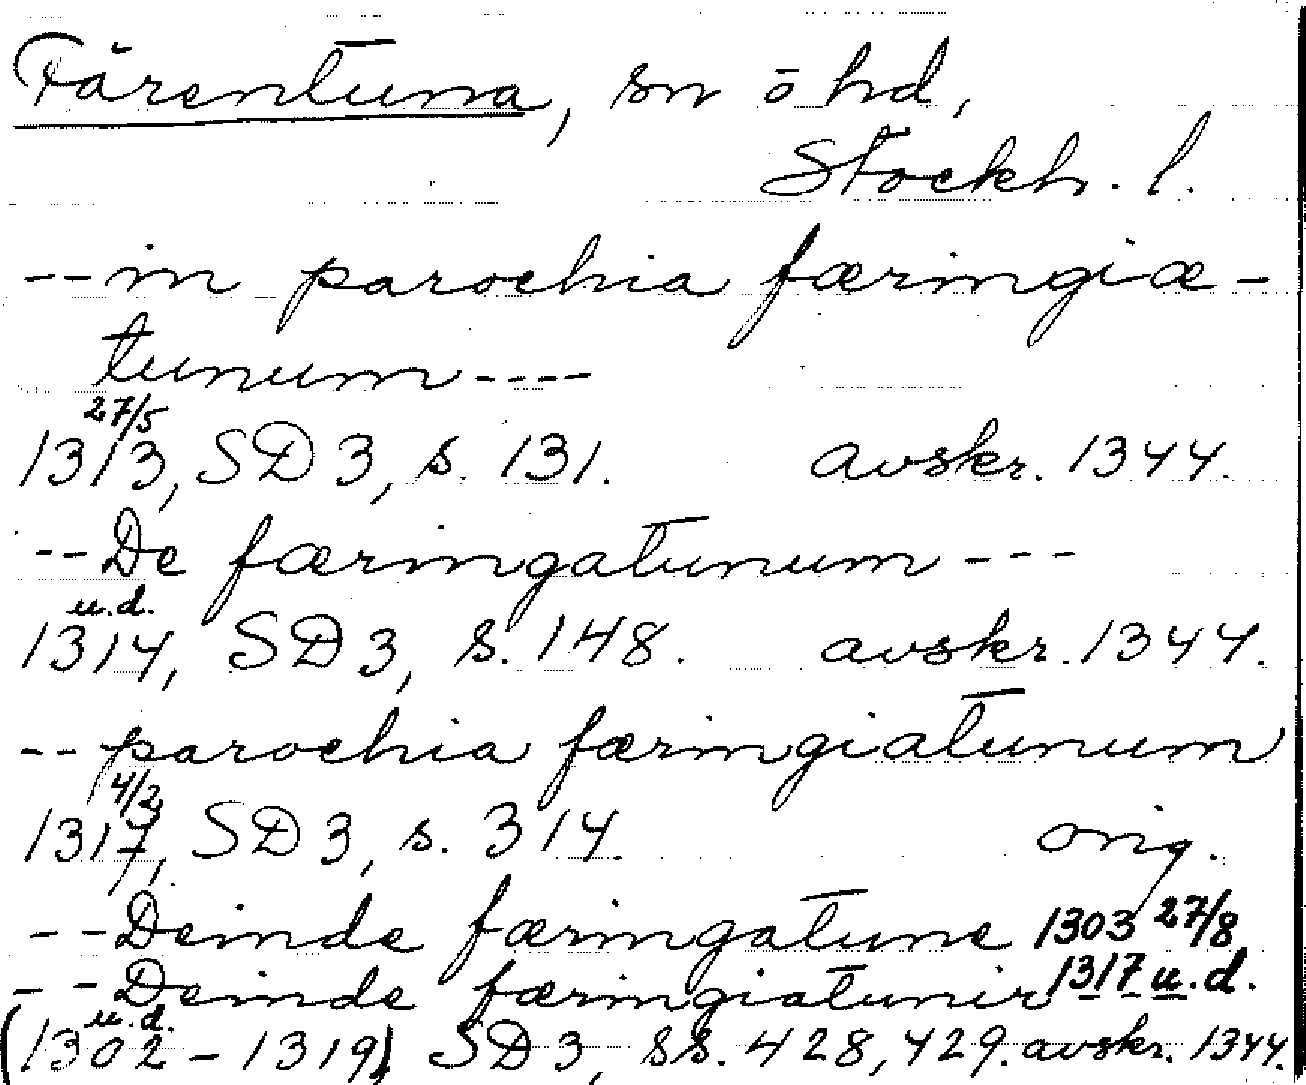 Färentuna, sn ö hd,
Stockh. l.
-- in parochia færingiæ-
tunum ----
27/5
1313, SD 3, s. 131. avskr. 1344.
-- De færingatunum ---
u.d.
1314, SD 3, s. 148. avskr. 1344.
-- parochia færingiatunum
4/2
1317, SD 3, s. 314. orig.
-- Deinde færingatune 1303 27/8
-- Deinde færingiatunir 1317 u.d.
u.d.
(1302 - 1319) SD 3, ss. 428, 429. avskr. 1344.